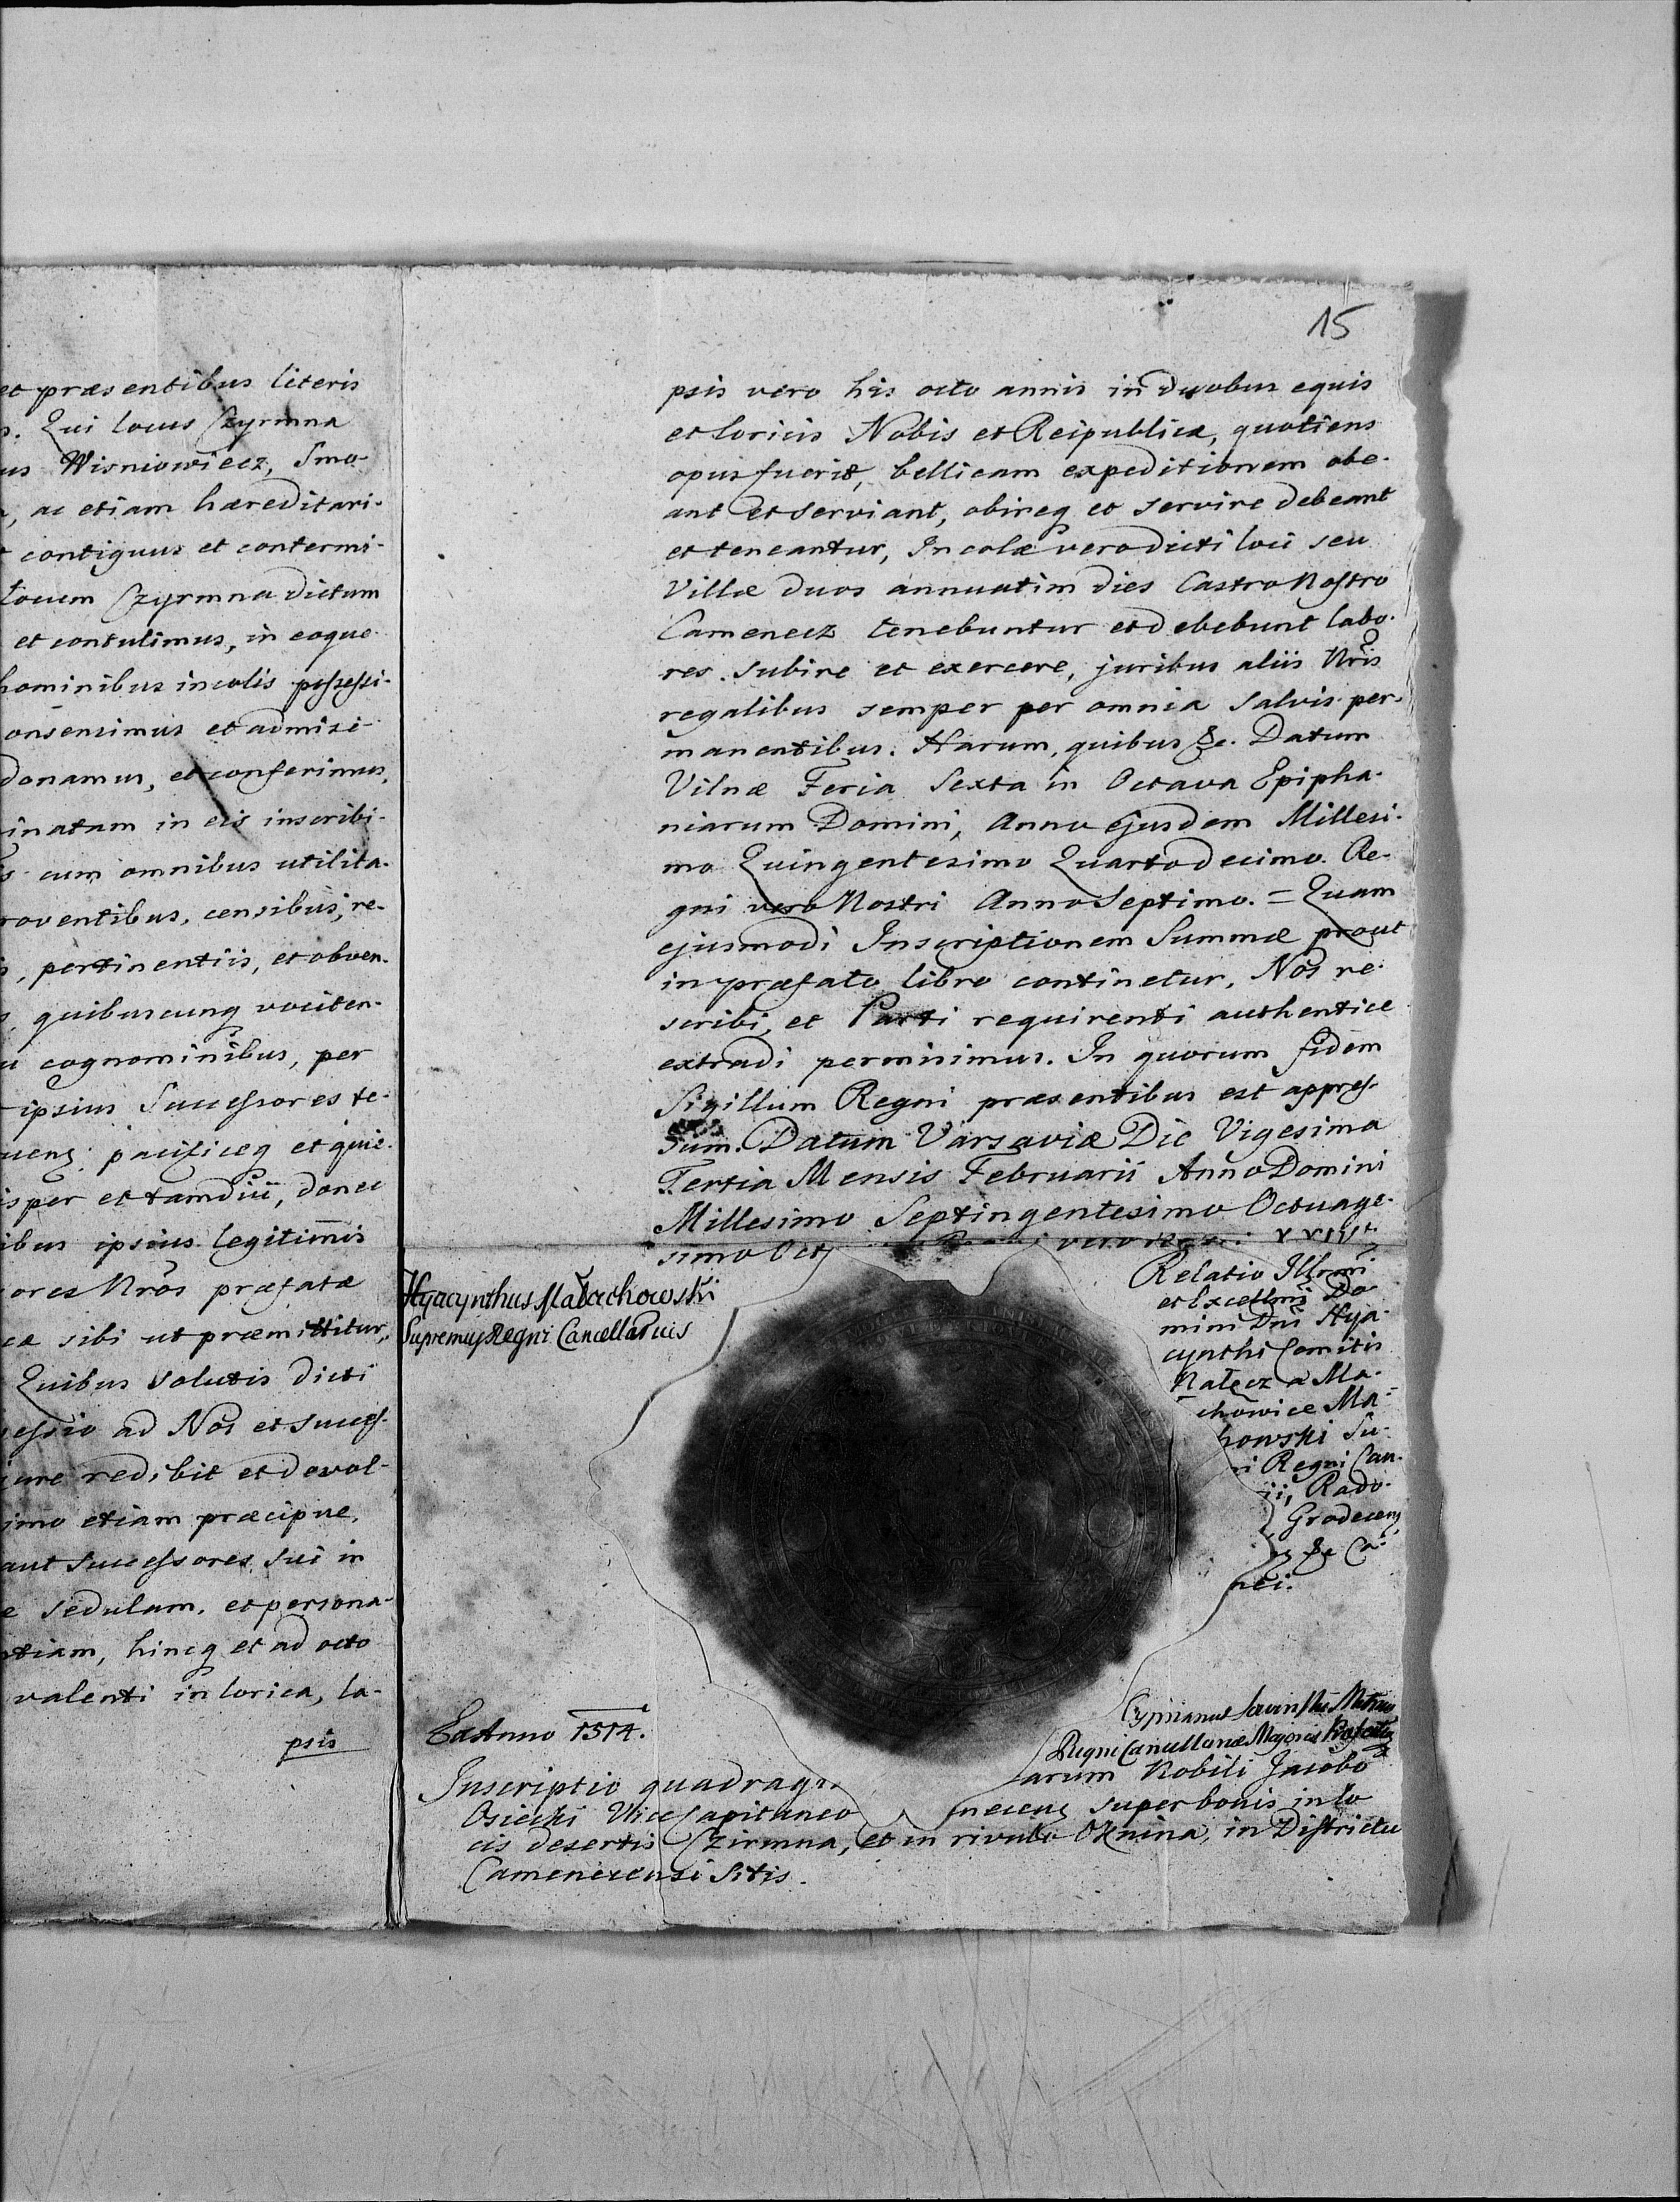 et præsentibus literis
Qui locus Czyrmna
us Wisniowiecz, Smo-
, ac etiam hæreditari-
contiguus et contermi-
Locum Czyrmna dictum
et contulimus, in eoque
hominibus incolis possessi-
onsensimus et admisi-
donamus, et conferimus,
inatam in eis inscribi-
s cum omnibus utilita-
roventibus, censibus, re-
, pertinentiis, et obven-
, quibuscunq vociten-
u cognominibus, per
ipsius Successores te-
pacificeq et quie-
isper et tamdiu, donec
ibus ipsius legitimis
ores Nros præfatæ
ca sibi ut præmittitur,
Quibus solutis dicti
essio ad Nos et succes-
jure redibit et devol-
imo etiam præcipue,
aut Successores sui in
e sedulam, et persona-
ntiam, hincq et ad octo
valenti in lorica, la-
psis
15
psis vero his octo annis in duobus equis
et loricis Nobis et Reipublicæ, quotiens
opus fuerit, bellicam expeditionem obe-
ant et serviant, obireq et servire debeant
et teneantur, Incolæ vero dicti loci seu
Villæ duos annuatim dies Castro Nostro
Camenecz tenebuntur et debebunt labo-
res subire et exercere, juribus aliis Nris
regalibus semper per omnia salvis per-
manentibus. Harum, quibus &c. Datum
Vilnæ Feria Sexta in Octava Epipha-
niarum Domini, Anno ejusdem Millesi-
mo Quingentesimo Quarto decimo. Re-
gni vero Nostri Anno Septimo. = Quam
ejusmodi Inscriptionem Summæ prout
in præfato libro continetur, Nos re-
scribi, et Parti requirenti authentice
extradi permisimus. In quorum fidem
Sigillum Regni præsentibus est appres-
sum. Datum Varsaviæ Die Vigesima
Tertia Mensis Februarii Anno Domini
Millesimo Septingentesimo Octuage-
simo Oct vero
Hyacynthus Małachowski
Supremus Regni Cancellarius
Relatio Illrmi
et Excellmi Do
mini Dni Hya-
cynthi Comitis
Nałęcz a Ma-
chowice Ma-
howski Su-
ri Regni Can-
ii, Rado-
Grodecens
&c Ca-
nei.
Cyprianus
Regni Cancellariæ Majoris
Ex Anno 1514.
Inscriptio quadrag arum Nobili Jacobo
Osiecki Vice Capitaneo necens super bonis in lo
cis desertis Czirmna, et in rivulo Oknina, in Districtu
Camenecensi Sitis.